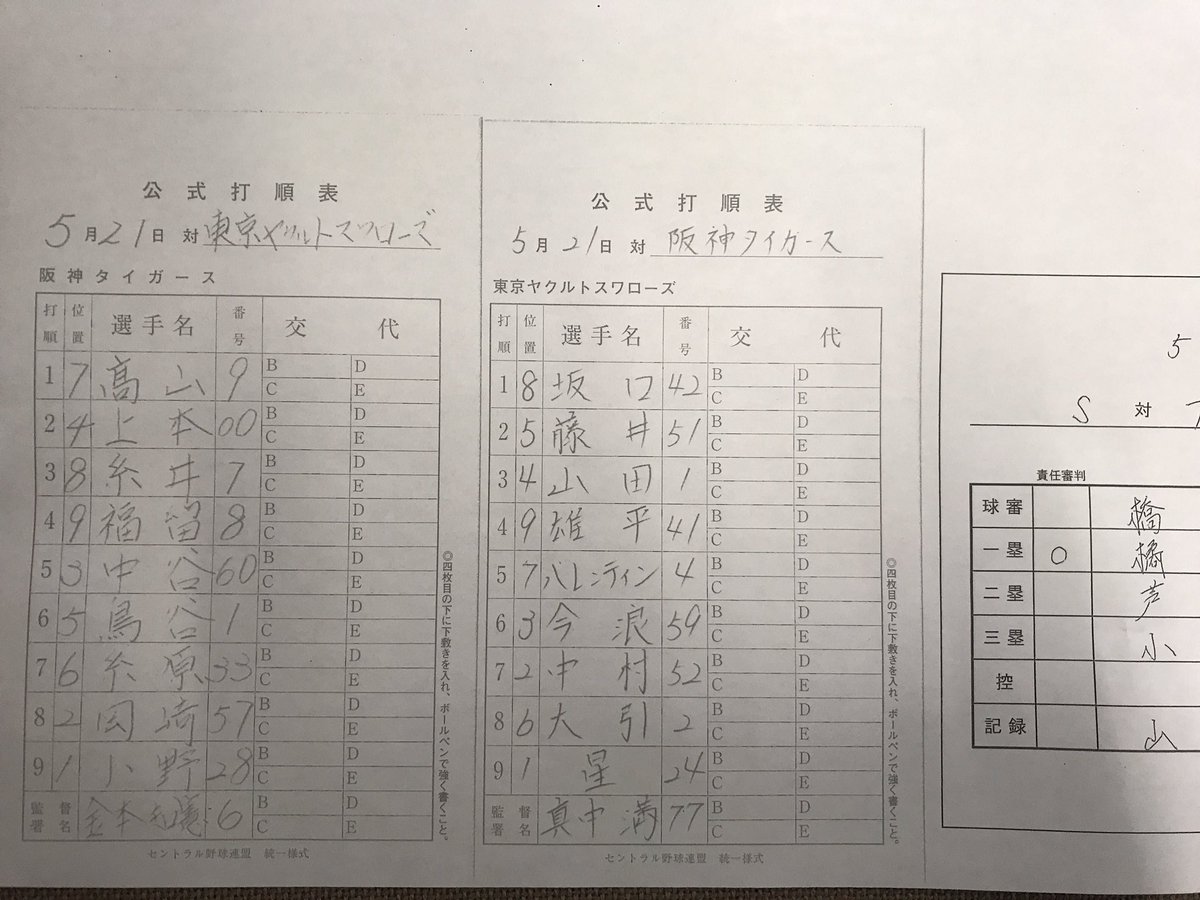 公式打順表
5月21日 対 東京ヤクルトスワローズ
阪神タイガース
打順 位置 選手名 番号 交代
1 7 髙山 9 B D C E
2 4 上本 00 B D C E
3 8 糸井 7 B D C E
4 9 福留 8 B D C E
5 3 中谷 60 B D C E
6 5 鳥谷 1 B D C E
7 6 糸原 33 B D C E
8 2 岡﨑 57 B D C E
9 1 小野 28 B D C E
監督署名 金本知憲 6 B D C E
◎四枚目の下に下敷きを入れ、ボールペンで強く書くこと。
セントラル野球連盟 統一様式
公式打順表
5月21日 対 阪神タイガース
東京ヤクルトスワローズ
打順 位置 選手名 番号 交代
1 8 坂口 42 B D C E
2 5 藤井 51 B D C E
3 4 山田 1 B D C E
4 9 雄平 41 B D C E
5 7 バレンティン 4 B D C E
6 3 今浪 59 B D C E
7 2 中村 52 B D C E
8 6 大引 2 B D C E
9 1 星 24 B D C E
監督署名 真中満 77 B D C E
◎四枚目の下に下敷きを入れ、ボールペンで強く書くこと。
セントラル野球連盟 統一様式
5
S 対
責任審判
球審 橋
一塁 ○ 橘
二塁 芦
三塁 小
控
記録 山